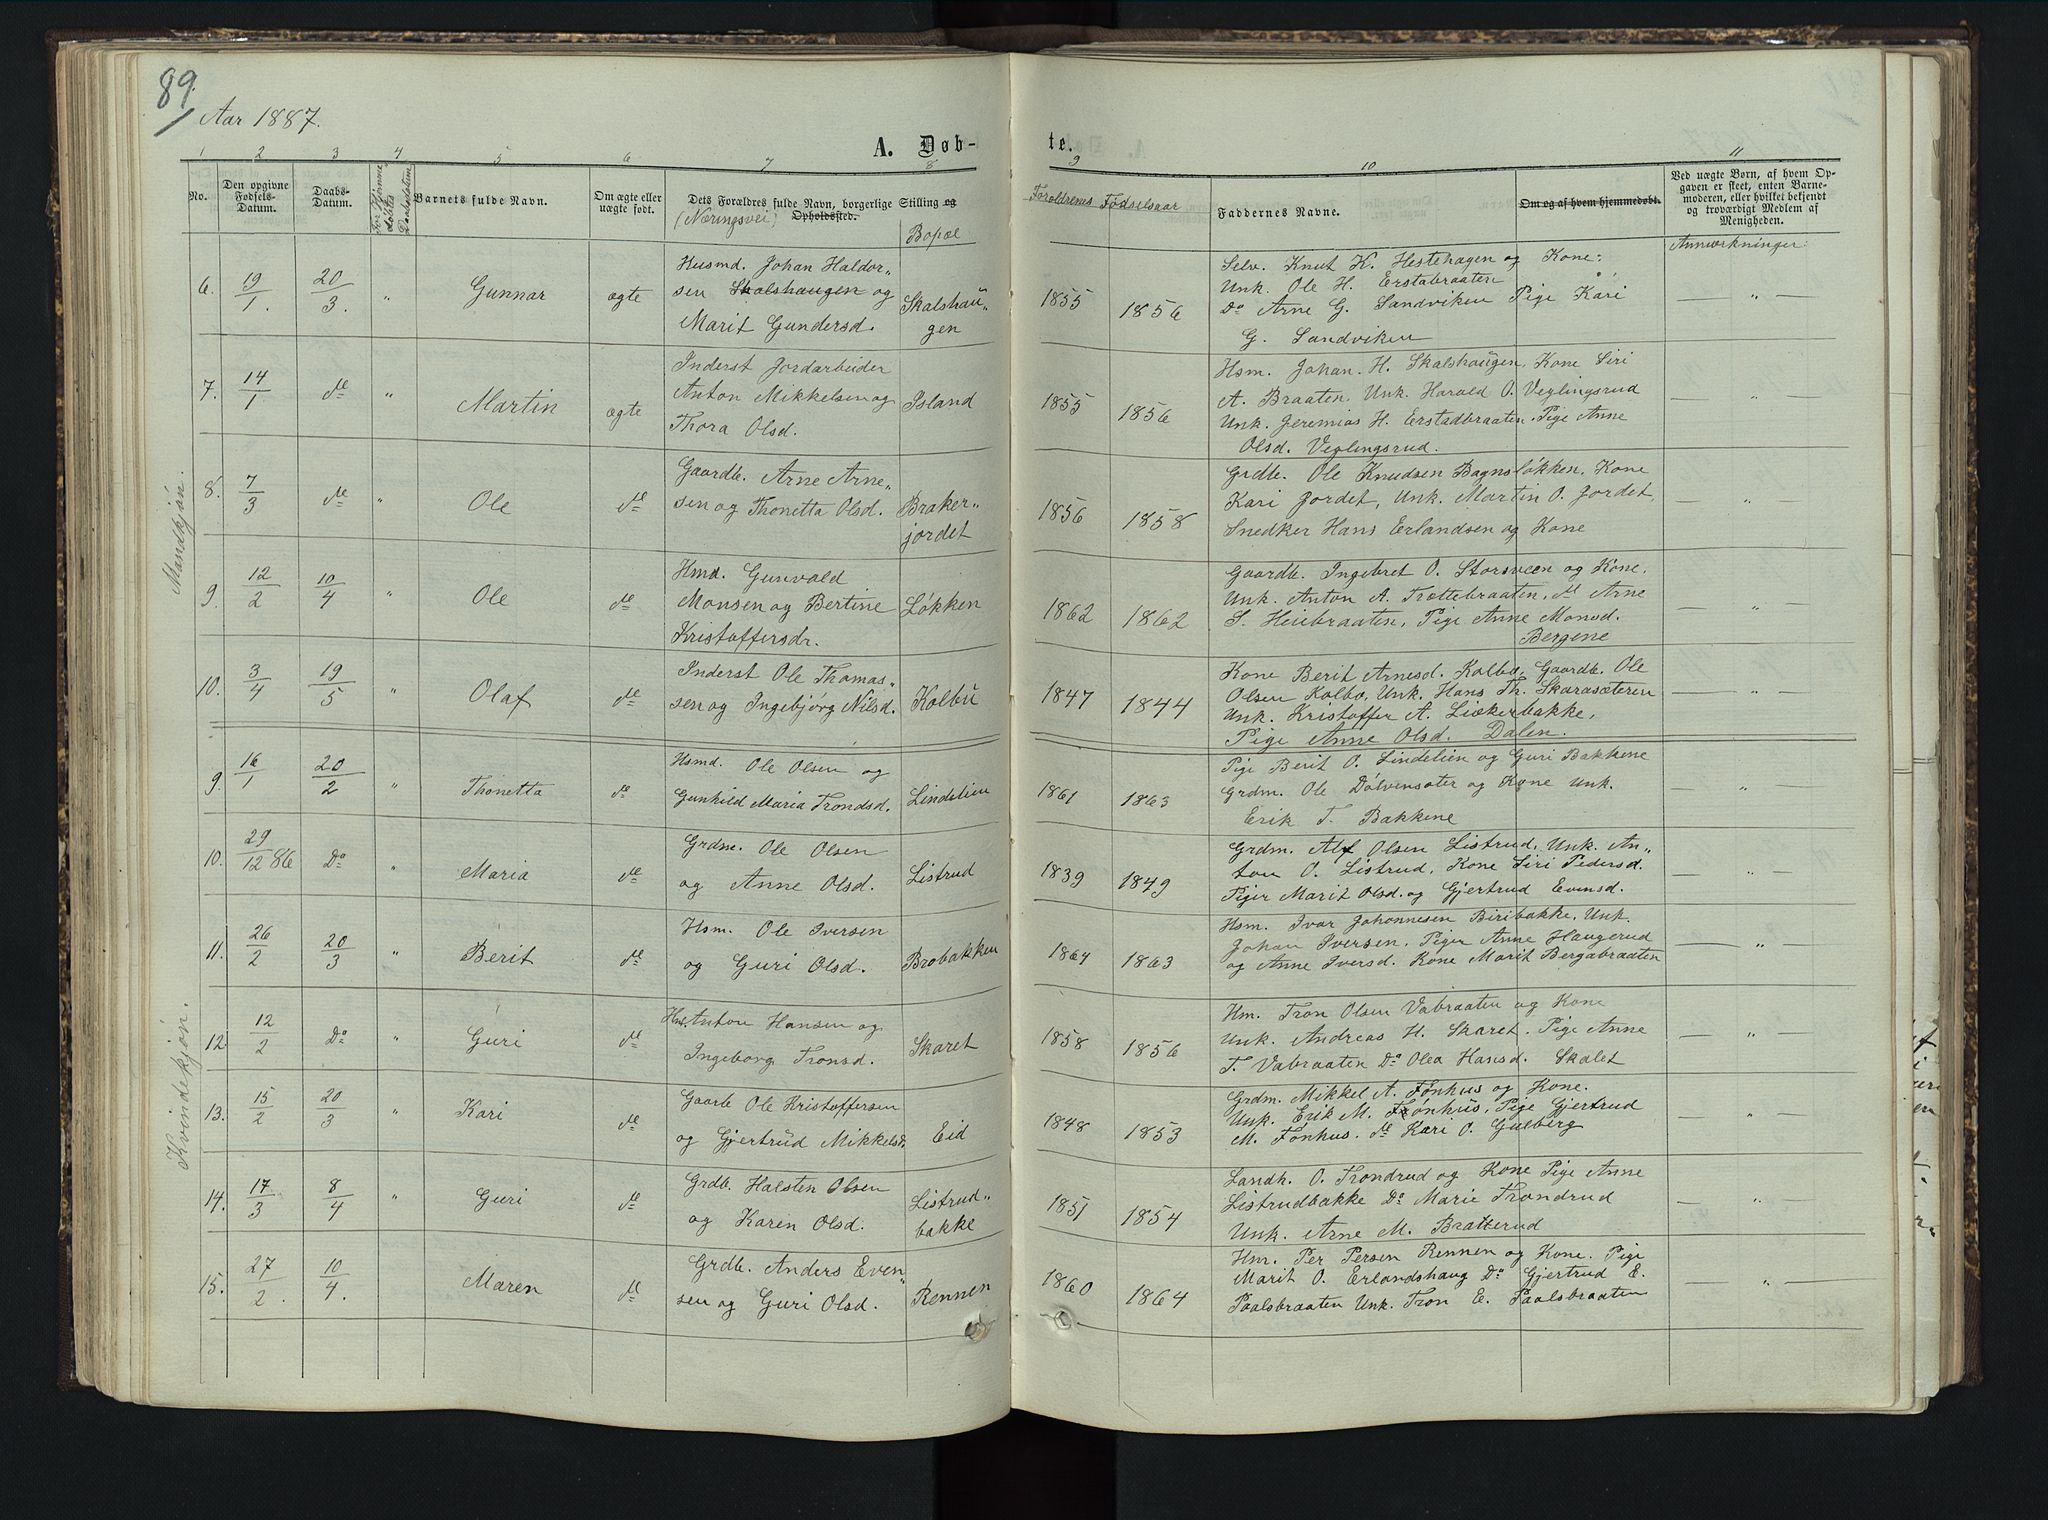 89.
Aar 1887.
A. Døb-
te.
1 2 3 4 5 6 7 8
9 10 11
No.
Den opgivne Fødsels-Datum.
Daabs-Datum.
Barnets fulde Navn.
Om ægte eller uægte født.
Dets Forældres fulde Navn, borgerlige Stilling og
(Næringsvei) Opholdssted.
Bopæl
Forældrenes Fødselsaar
Faddernes Navne.
Om og af hvem hjemmedøbt.
Ved uægte Børn, af hvem Op-
gaven er skeet, enten Barne-
moderen, eller hvilket bekjendt
og troværdigt Medlem af
Menigheden.
Anmærkninger:
Mandkjön.
6. 19/1. 20/3. " Gunnar ægte
Husmd. Johan Haldor-
sen Skalshaugen og
Marit Gundersd.
Skalshau-
gen
1855 1856
Selv. Knut K. Hestehagen og Kone.
Unk. Ole H. Erstabraaten
Do Arne G. Sandviken Pige Kari
G. Sandviken
— " —
7. 14/1 de " Martin ægte
Inderst Jordarbeider
Anton Mikkelsen og
Thora Olsd.
Island
1855 1856
Hsm. Johan. H. Skalshaugen, Kone Siri
A. Braaten. Unk. Harald O. Veglingsrud
Unk. Jeremias H. Erstadbraaten. Pige Anne
Olsd. Veglingsrud.
— " —
8. 7/3 de " Ole de
Gaardb. Arne Arne-
sen og Thonetta Olsd.
Braker-
jordet
1856 1858
Grdb. Ole Knudsen Bagnsløkken, Kone
Kari Jordet, Unk. Martin O. Jordet,
Snedker Hans Erlandsen og Kone
— "
9. 12/2 10/4 " Ole de
Hmd. Gunvald
Monsen og Bertine
Kristoffersdr.
Løkken
1862 1862
Gaardb. Ingebret O. Storsveen og Kone,
Unk. Anton A. Trøttebraaten, de Arne
S. Heiebraaten, Pige Anne Monsd.
Bergene
— " —
10. 3/4 19/5 " Olaf de
Inderst Ole Thomas-
sen og Ingebjørg Nilsd.
Kolbu
1847 1844
Kone Berit Arnesd. Kolbo, Gaardb. Ole
Olsen Kolbo, Unk. Hans Th. Skarasæteren
Unk. Kristoffer A. Liækerbakke,
Pige Anne Olsd. Dalen.
— " —
Kvindekjön.
9. 16/1 20/2 " Thonetta de
Hsmd. Ole Olsen og
Gunhild Maria Trondsd.
Lindelien
1861 1863
Pige Berit O. Lindelien og Guri Bakkene
Grdm. Ole Dølvensæter og Kone Unk.
Erik T. Bakkene
— " —
10. 29/12 86 Do " Maria de
Grdm. Ole Olsen
og Anne Olsd.
Listrud
1839 1849
Grdm. Alf Olsen Listrud, Unk. An-
ton O. Listrud, Kone Siri Pedersd.
Piger Marit Olsd. og Gjertrud Evensd.
— " —
11. 26/2 20/3 " Berit de
Hsm. Ole Iversen
og Guri Olsd.
Brobakken
1864 1863
Hsm. Ivar Johannesen Biribakke, Unk.
Johan Iversen. Piger Anne Haugerud
og Anne Iversd. Kone Marit Bergabraaten
— " —
12. 12/2 Do " Guri de
Hns. Anton Hansen og
Ingeborg Tronsd.
Skaret
1858 1856
Hm. Tron Olsen Vabraaten og Kone
Unk. Andreas H. Skaret. Pige Anne
T. Vabraaten Do Olea Hansd. Skalet
— " —
13. 15/2 20/3 " Kari de
Gaarb Ole Kristoffersen
og Gjertrud Mikkelsd.
Eid
1848 1853
Grdm. Mikkel A. Fønhus og Kone.
Unk. Erik M. Fønhus, Pige Gjertrud
M. Fønhus. de Kari O. Gulberg
— "
14. 17/3 8/4 " Guri de
Grdb. Halsten Olsen
og Karen Olsd.
Listrud-
bakke
1851 1854
Landh. O. Trondrud og Kone Pige Anne
Listrudbakke Do Marie Trondrud
Unk. Arne M. Bratterud
— " —
15. 27/2. 10/4. Maren de
Grdb. Anders Even-
sen og Guri Olsd.
Rennen
1860 1864
Hm. Per Persen Rennen og Kone. Pige
Marit O. Erlandshaug Do Gjertrud E.
Paalsbraaten Unk. Tron E. Paalsbraaten
— " —